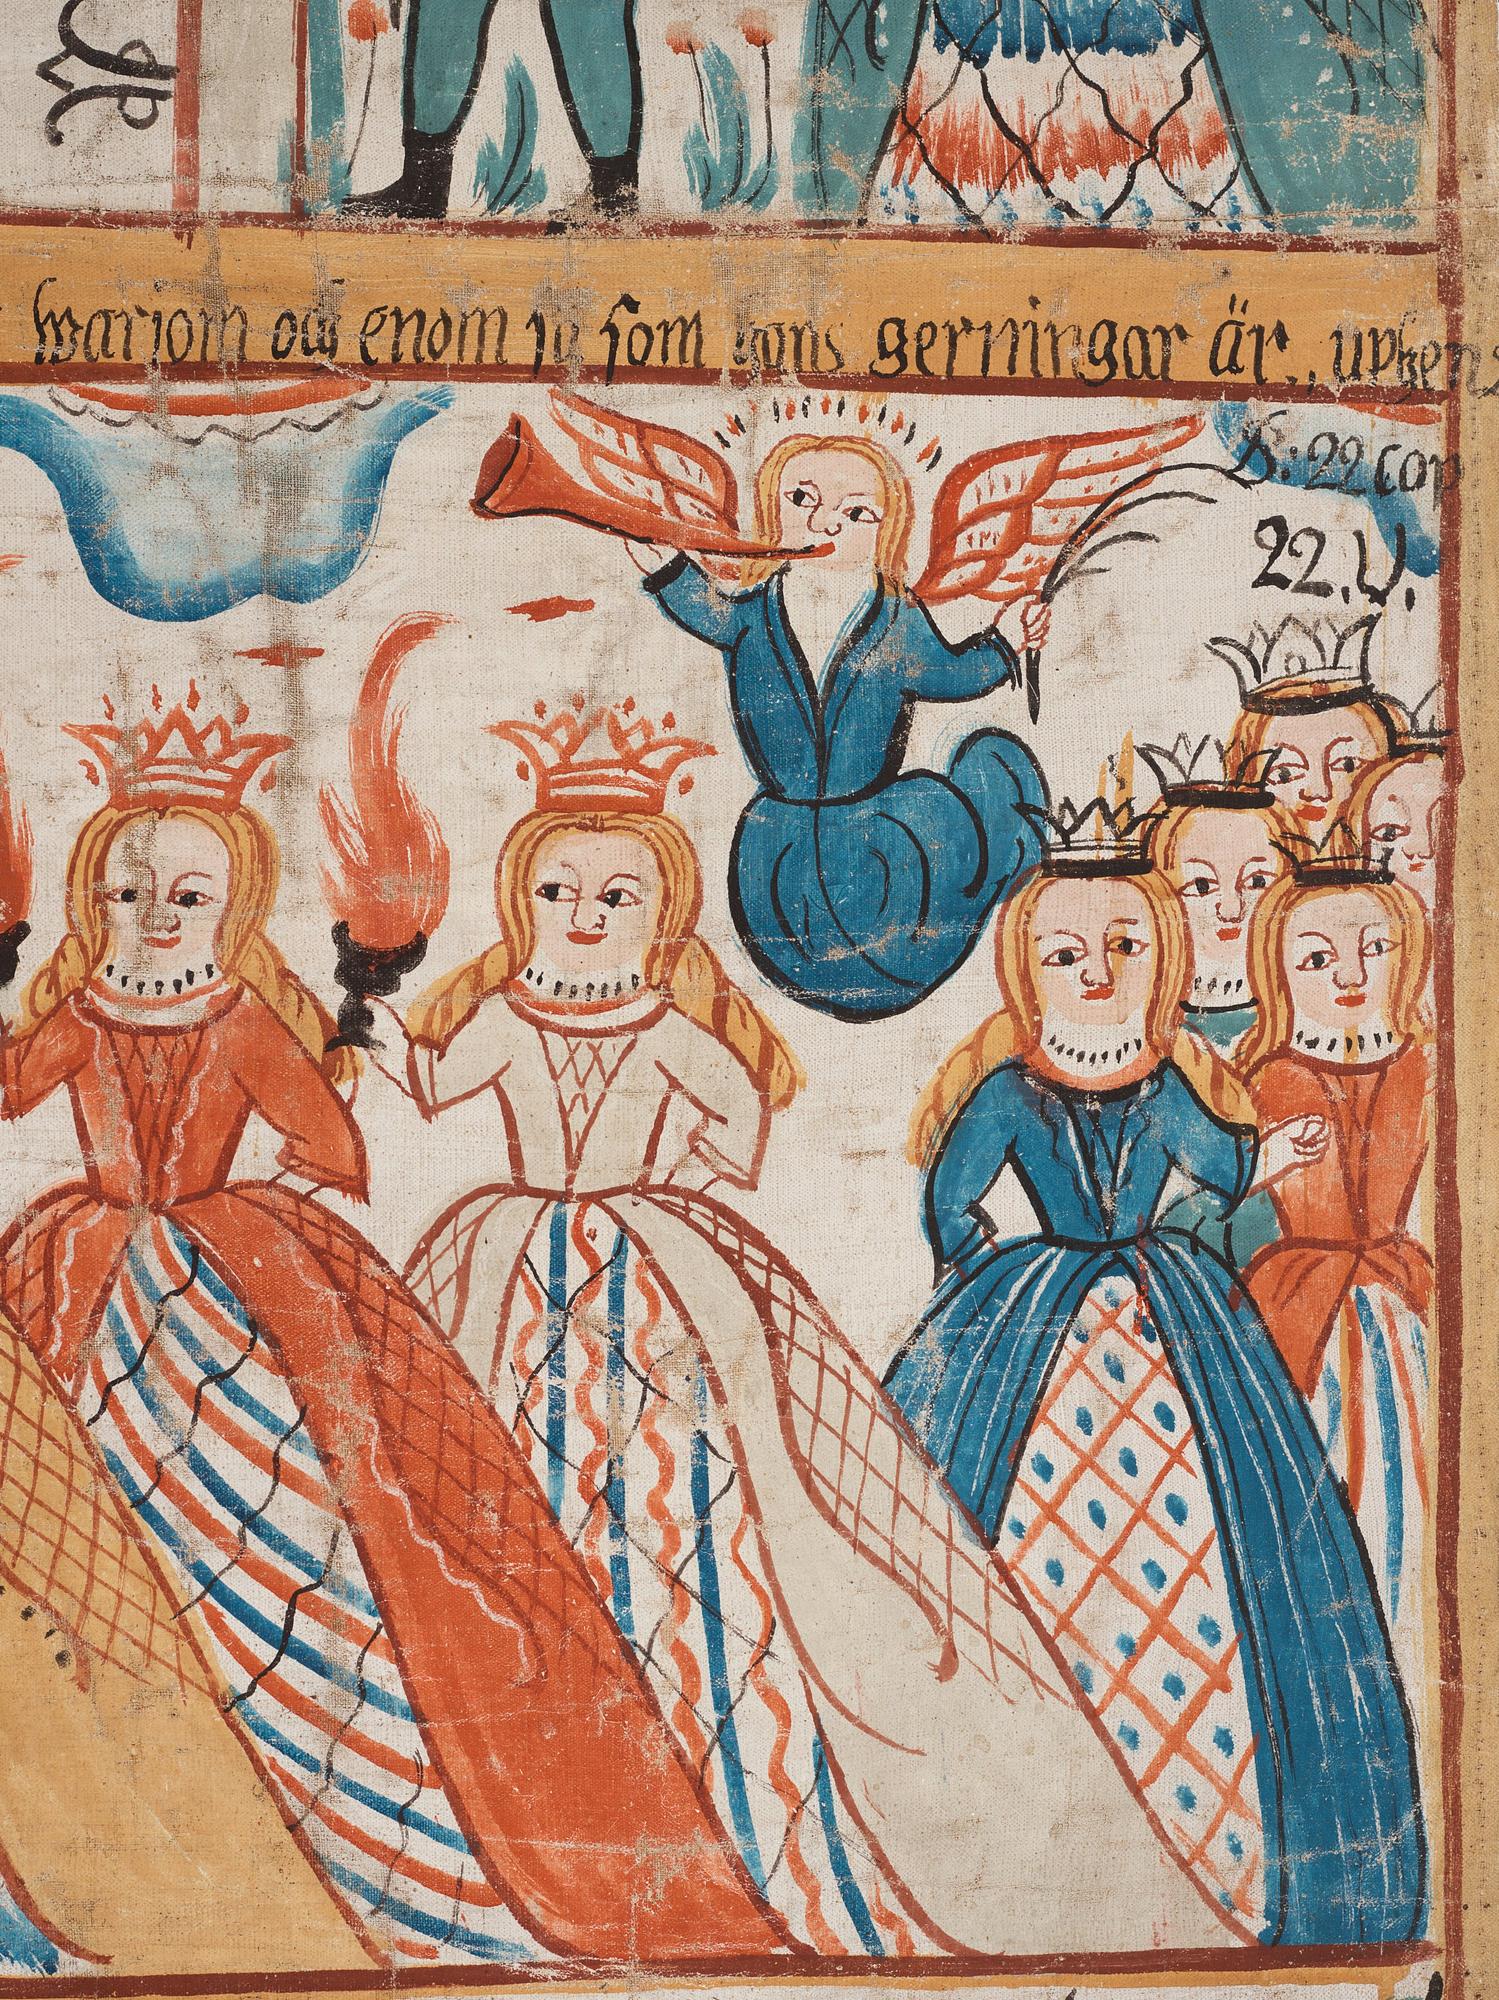 warjom och enom så som hans gerningar är,, upben
S: 22 Cap
22. V.